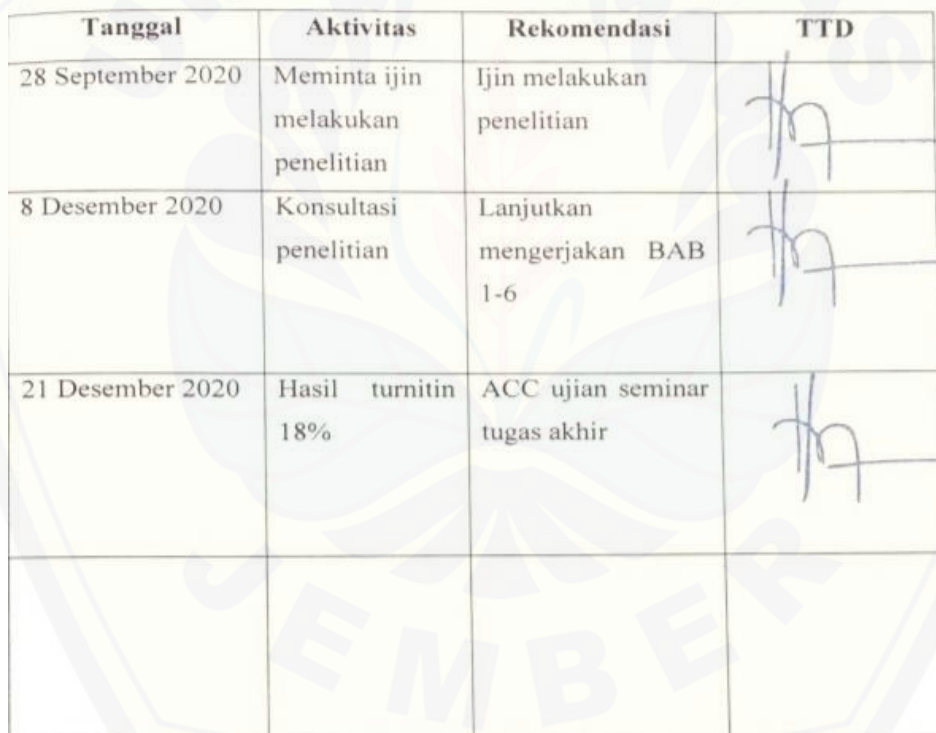 Tanggal Aktivitas Rekomendasi TTD
28 September 2020 Meminta ijin Ijin melakukan
melakukan penelitian
penelitian
8 Desember 2020 Konsultasi Lanjutkan
penelitian mengerjakan BAB
1-6
21 Desember 2020 Hasil turnitin ACC ujian seminar
18% tugas akhir
JEMBER